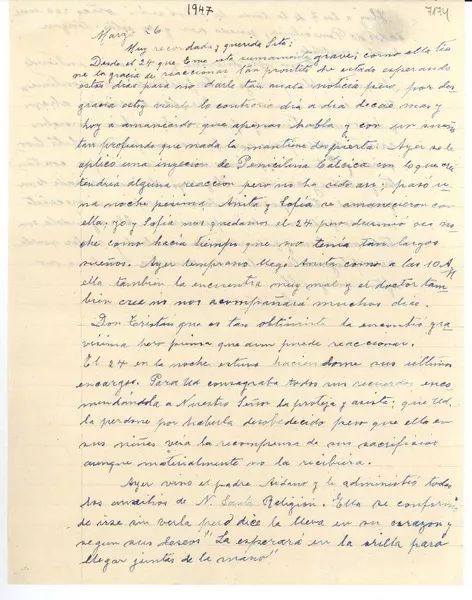 1947
7174
Mayo 26
Muy recordada y querida Srta:
Desde el 24 que Eme está sumamente grave; como ella tie
ne la gracia de reaccionar tan prontito he estado esperando
estos días para no darle tan mala noticia pero, por des-
gracia estoy viendo lo contrario día a día decae mas y
hoy a amanecido que apenas habla y con un sueño
tan profundo que nada la mantiene despierta. Ayer se le
aplicó una inyección de Penicilina Cálcica con lo que
tendría alguna reacción pero no ha sido así; pasó u-
na noche pésima Anita y Sofía se amanecieron con
ella, yo y Sofía nos quedamos el 24 pero durmió esa no-
che como hacía tiempo que no tenía tan largos
sueños. Ayer temprano llegó Anita como a las 10 A.M
ella también la encuentra muy mal y el doctor tam-
bién cree no nos acompañará muchos días.
Don Tristán que es tan optimista la encontró gra-
vísima pero piensa que aun puede reaccionar.
El 24 en la noche estuvo haciéndome sus últimos
encargos. Para Ud consagraba todos sus recuerdos enco
mendándola a Nuestro Señor la proteja y asista; que Ud.
la perdone por haberla desobedecido pero que ella en
sus niñas veía la recompensa de sus sacrificios
aunque materialmente no la recibiera.
Ayer vino el padre Aidano y le administró todos
los auxilios de N. Santa Religión. Ella se conforma
de irse sin verla pero dice la lleva en su corazón y
según sus deseos "La esperará en la orilla para
llegar juntas de la mano"